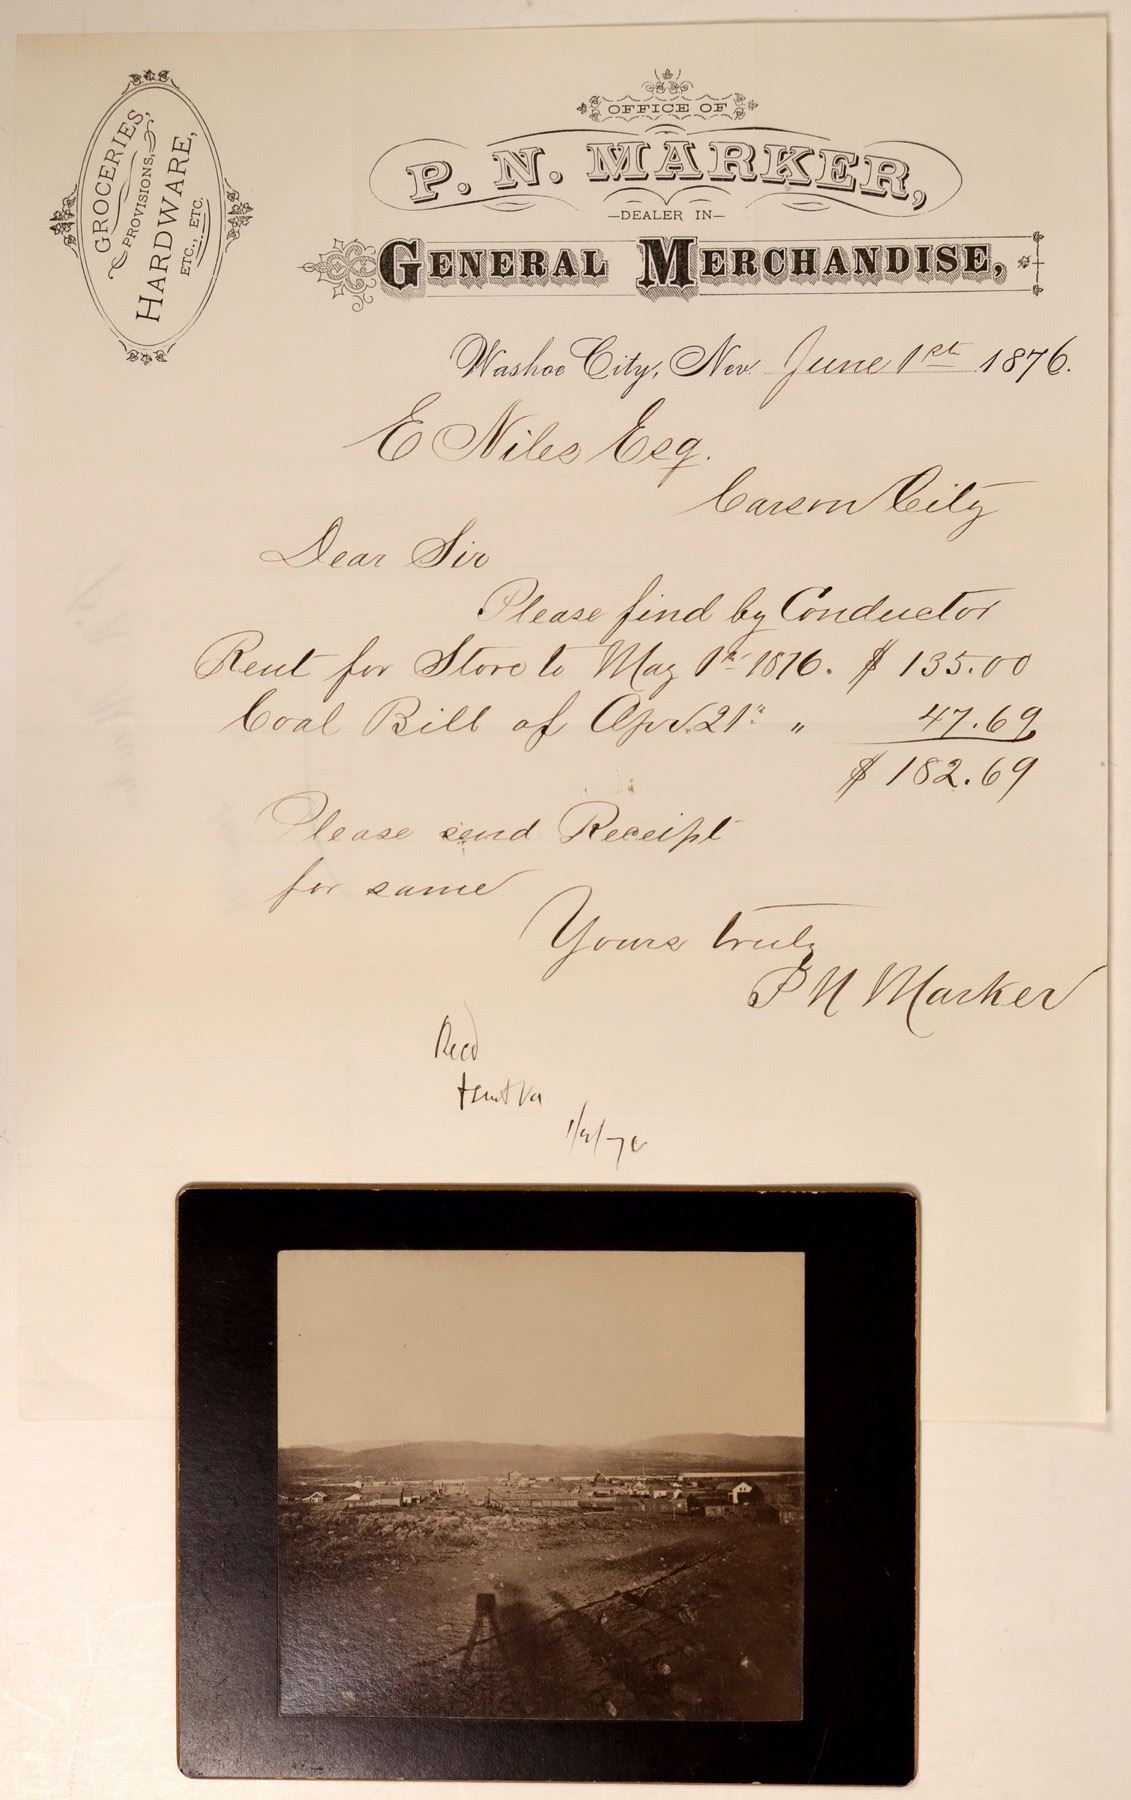 GROCERIES,
PROVISIONS,
HARDWARE,
ETC., ETC.
OFFICE OF
P. N. MARKER,
—DEALER IN—
GENERAL MERCHANDISE,
Washoe City, Nev. June 1st 1876.
E Niles Esq.
Carson City
Dear Sir
Please find by Conductor
Rent for Store to May 1st 1876. $ 135.00
Coal Bill of Apr. 21st " 47.69
$ 182.69
Please send Receipt
for same
Yours truly
P N Marker
Recd